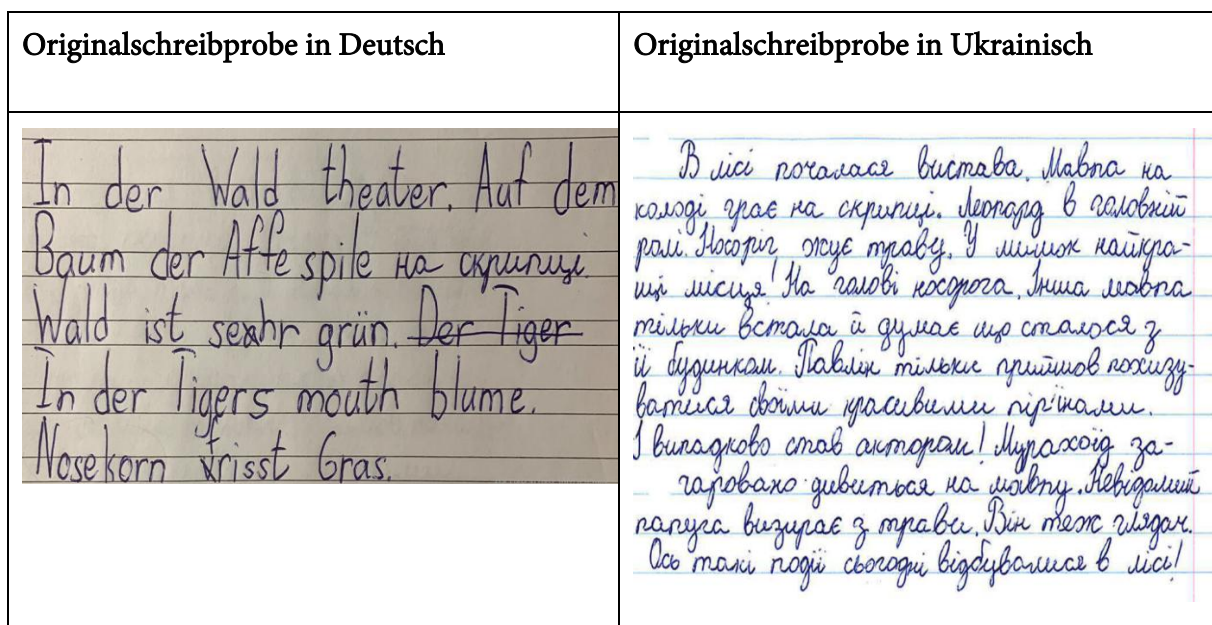 Originalschreibprobe in Deutsch
In der Wald theater. Auf dem
Baum der Affe spile на скрипці.
Wald ist sehr grün. Der Tiger
In der Tigers mouth blume.
Nosekorn frisst Gras.
Originalschreibprobe in Ukrainisch
В лісі почалася вистава. Мавпа на
колоді грає на скрипці. Леопард в головній
ролі. Носоріг жує траву. У мишок найкра-
щі місця! На голові носорога. Інша мавпа
тільки встала й думає що сталося з
її будинком. Павлін тільки прийшов похизу-
ватися своїми красивими пір'їнами.
І випадково став актором! Мурахоїд за-
чаровано дивиться на мавпу. Невідомий
папуга визирає з трави. Він теж глядач.
Ось такі події сьогодні відбувалися в лісі!